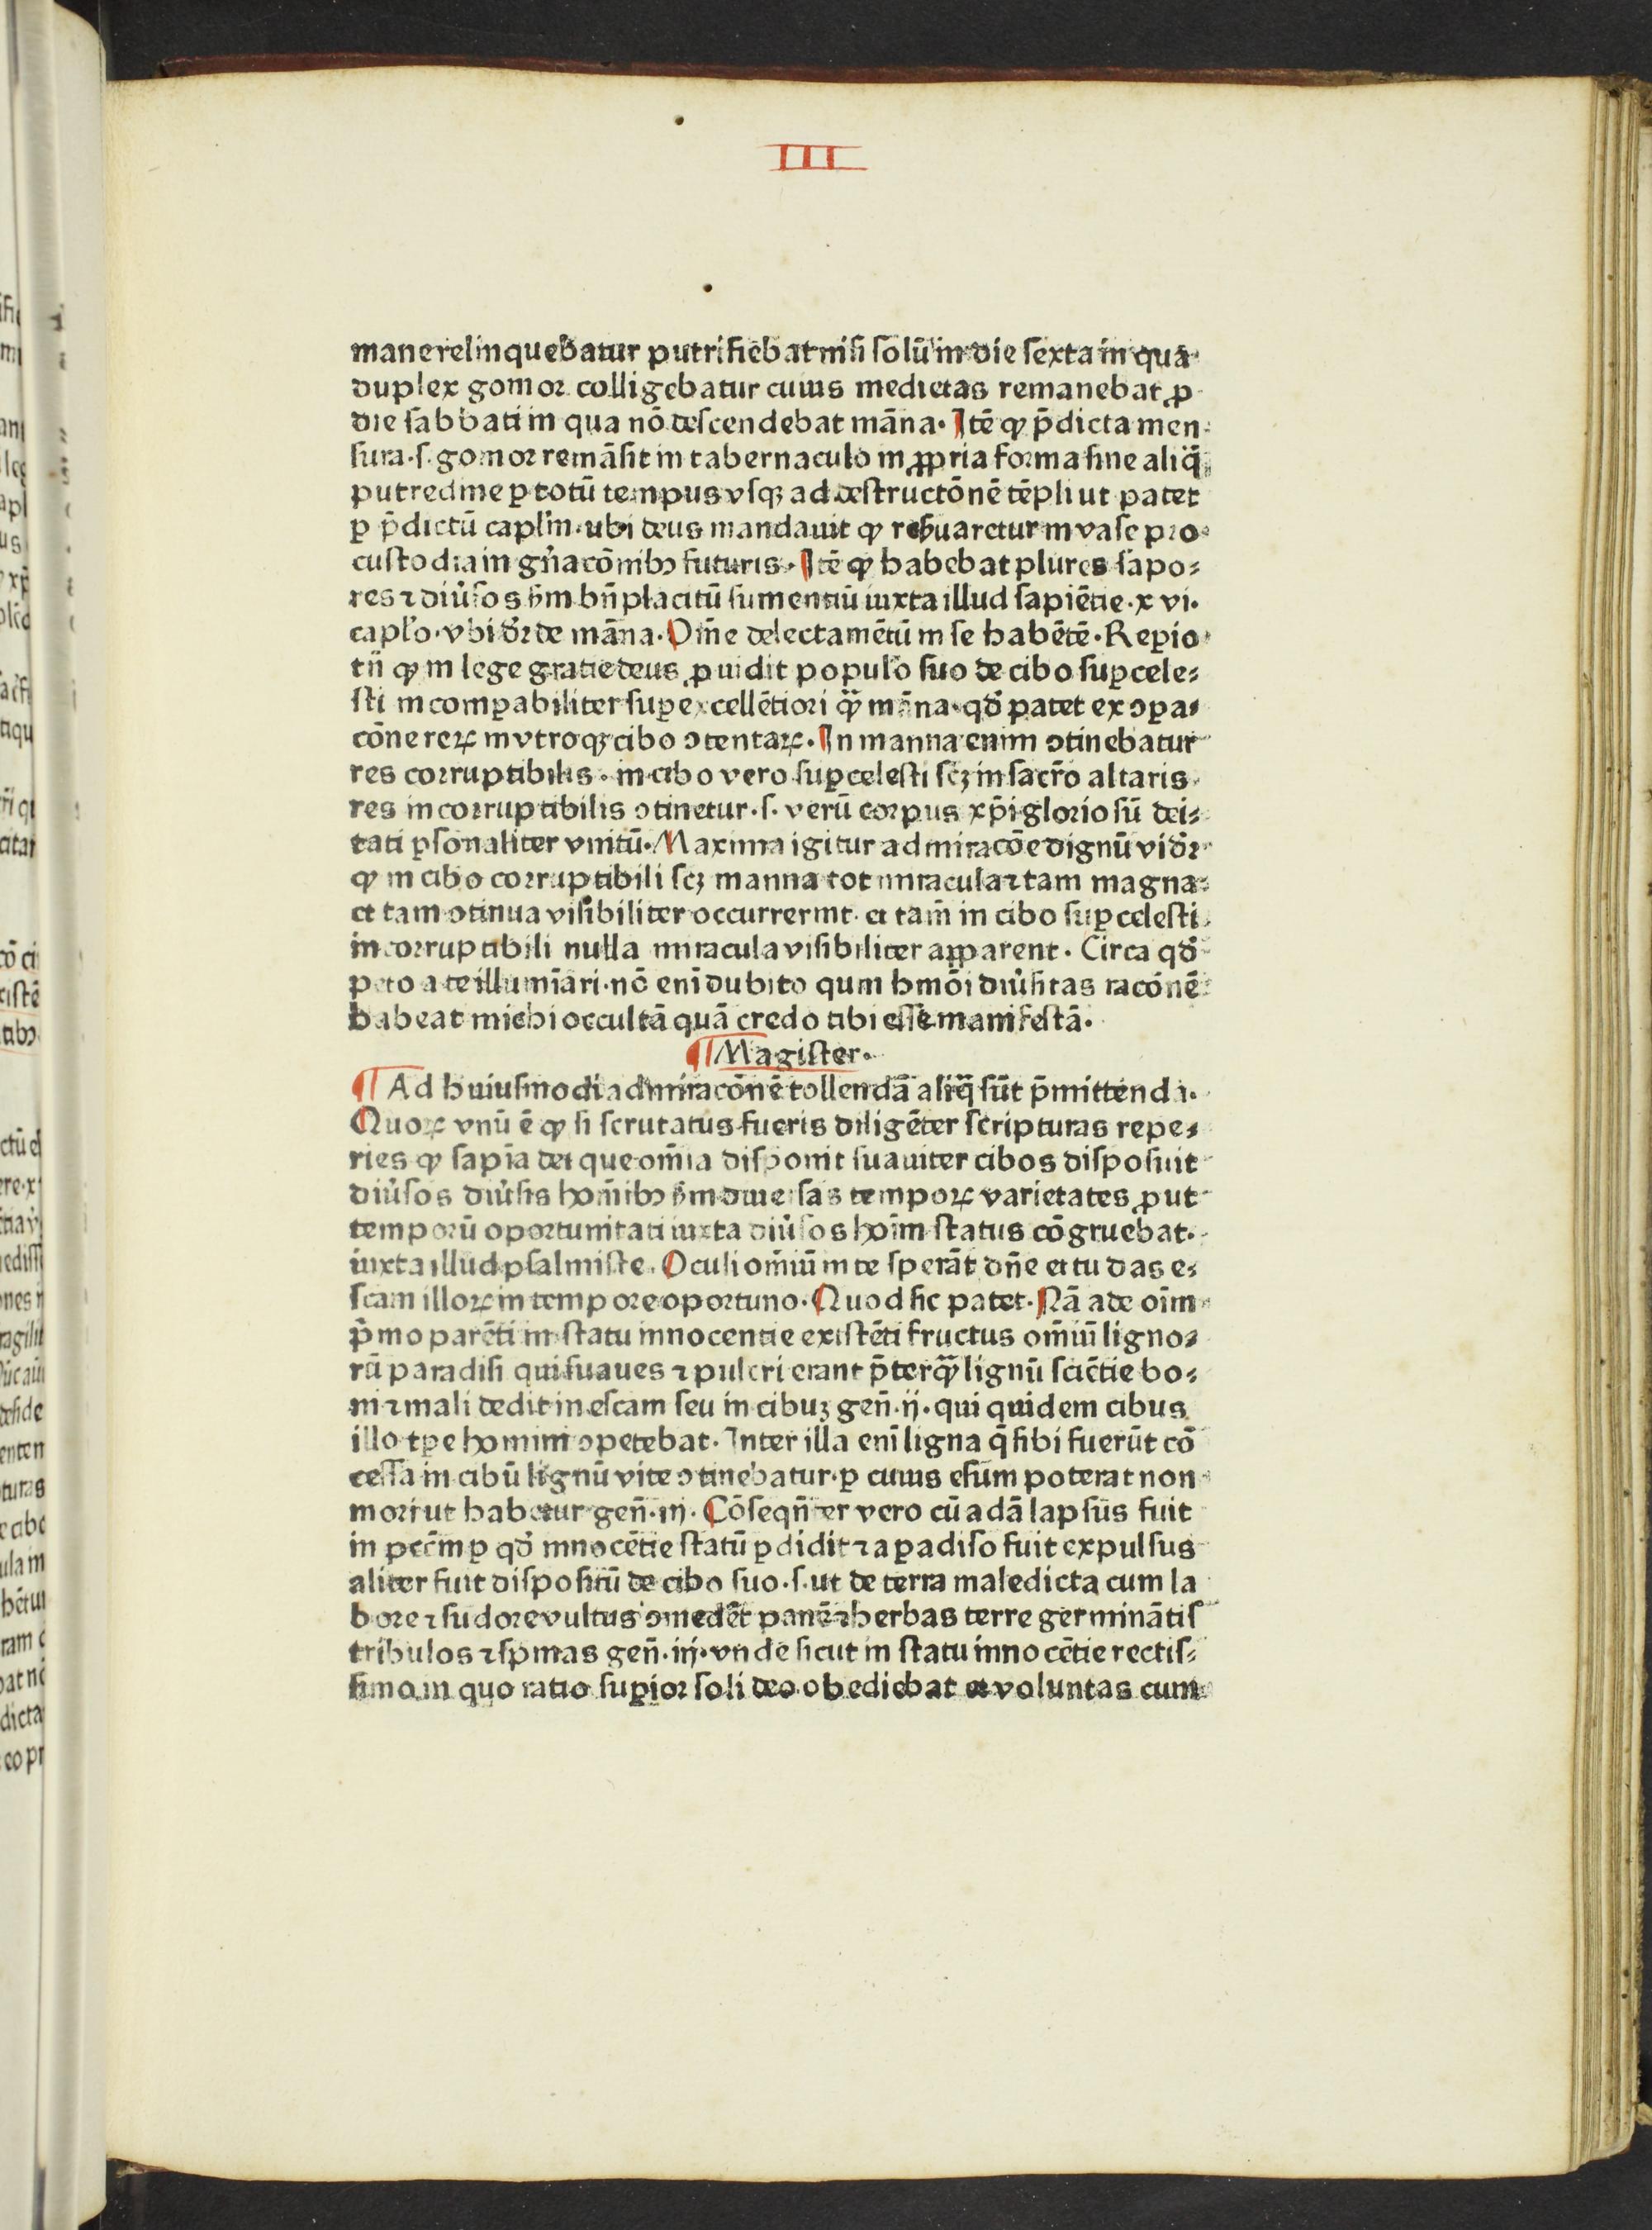 III
mane relinquebatur putrifiebat nisi solū in die sexta in qua
duplex gomor colligebatur cuius medietas remanebat ꝓ
die sabbati in qua nō descendebat māna. Itē ꝙ p̄dicta men
sura .s. gomor remāsit in tabernaculo in ꝓpria forma sine aliq̄
putredine ꝑ totū tempus vsqꝫ ad destructōnē tēpli ut patet
ꝑ p̄dictū caplm̄. ubi deus mandauit ꝙ reẜuaretur in vase pro
custodia in gn̄acōnibꝫ futuris. Itē ꝙ habebat plures sapo⸗
res ⁊ diu̓sos ẜm bn̄placitū sumentiū iuxta illud sapiētie. xvi.
caplo. vbi dr̓ de māna. Om̄e delectamētū in se habētē. Reꝑio
tn̄ ꝙ in lege gratie deus ꝓuidit populo suo de cibo suꝑcele⸗
sti incomꝑabiliter suꝑexcellētiori qȝ̄ māna. qd̓ patet ex ꝯꝑa⸗
cōne reꝝ in vtroqꝫ cibo ꝯtentaꝝ. In manna enim ꝯtinebatur
res corruptibilis. in cibo vero suꝑcelesti scꝫ in sacr̄o altaris
res incorruptibilis ꝯtinetur .s. verū corpus xp̄i gloriosū dei⸗
tati ꝑsonaliter vnitū. Maxima igitur admiracōe dignū vidr̓
ꝙ in cibo corruptibili scꝫ manna tot miracula ⁊ tam magna
et tam ꝯtinua visibiliter occurrerint. et tam̄ in cibo suꝑcelesti
incorruptibili nulla miracula visibiliter apparent. Circa qd̓
peto a te illumīari. nō enī dubito quin hmōi diu̓sitas racōnē
habeat michi occultā quā credo tibi esse manifestā.
¶ Magister.
¶ Ad huiusmodi admiracōnē tollendā aliq̄ sūt p̄mittenda.
Quoꝝ vnū ē ꝙ si scrutatus fueris diligēter scripturas repe⸗
ries ꝙ sapīa dei que om̄ia disponit suauiter cibos disposuit
diu̓sos diu̓sis hoīnibꝫ ẜm diuersas tempoꝝ varietates ꝓut
temporū oportunitati iuxta diu̓sos hoīm status cōgruebat.
iuxta illud psalmiste. Oculi om̄iū in te sperāt dn̄e et tu das e⸗
scam illoꝝ in tempore oportuno. Quod sic patet. Nā ade oīm
p̓mo parēti in statu innocentie existēti fructus om̄iū ligno⸗
rū paradisi qui suaues ⁊ pulcri erant p̄terqȝ̄ lignū sciētie bo⸗
ni ⁊ mali dedit in escam seu in cibuꝫ gen̄. ij. qui quidem cibus
illo tꝑe homini ꝯpetebat. Inter illa enī ligna q̄ sibi fuerūt cō
cessa in cibū lignū vite ꝯtinebatur. ꝑ cuius esum poterat non
mori ut habetur gen̄. iij. Cōseqn̄ter vero cū adā lapsus fuit
in pccm̄ ꝑ qd̓ innocētie statū ꝑdidit ⁊ a ꝑadiso fuit expulsus
aliter fuit dispositū de cibo suo .s. ut de terra maledicta cum la
bore ⁊ sudore vultus ꝯmedēt panē ⁊ herbas terre germinātis
tribulos ⁊ spinas gen̄. iij. vnde sicut in statu innocētie rectis⸗
simo in quo ratio suꝑior soli deo obediebat et voluntas cum